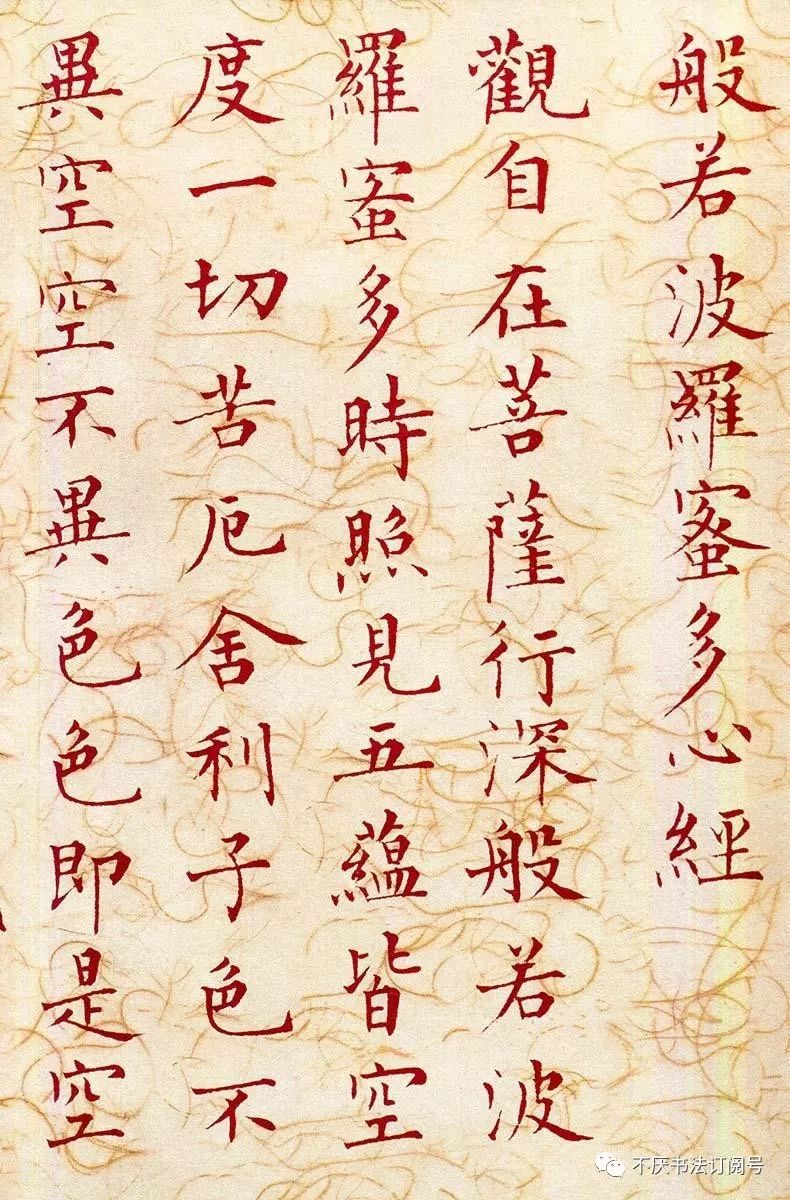 般若波羅蜜多心經
觀自在菩薩行深般若波
羅蜜多時照見五蘊皆空
度一切苦厄舍利子色不
異空空不異色色即是空
不厌书法订阅号